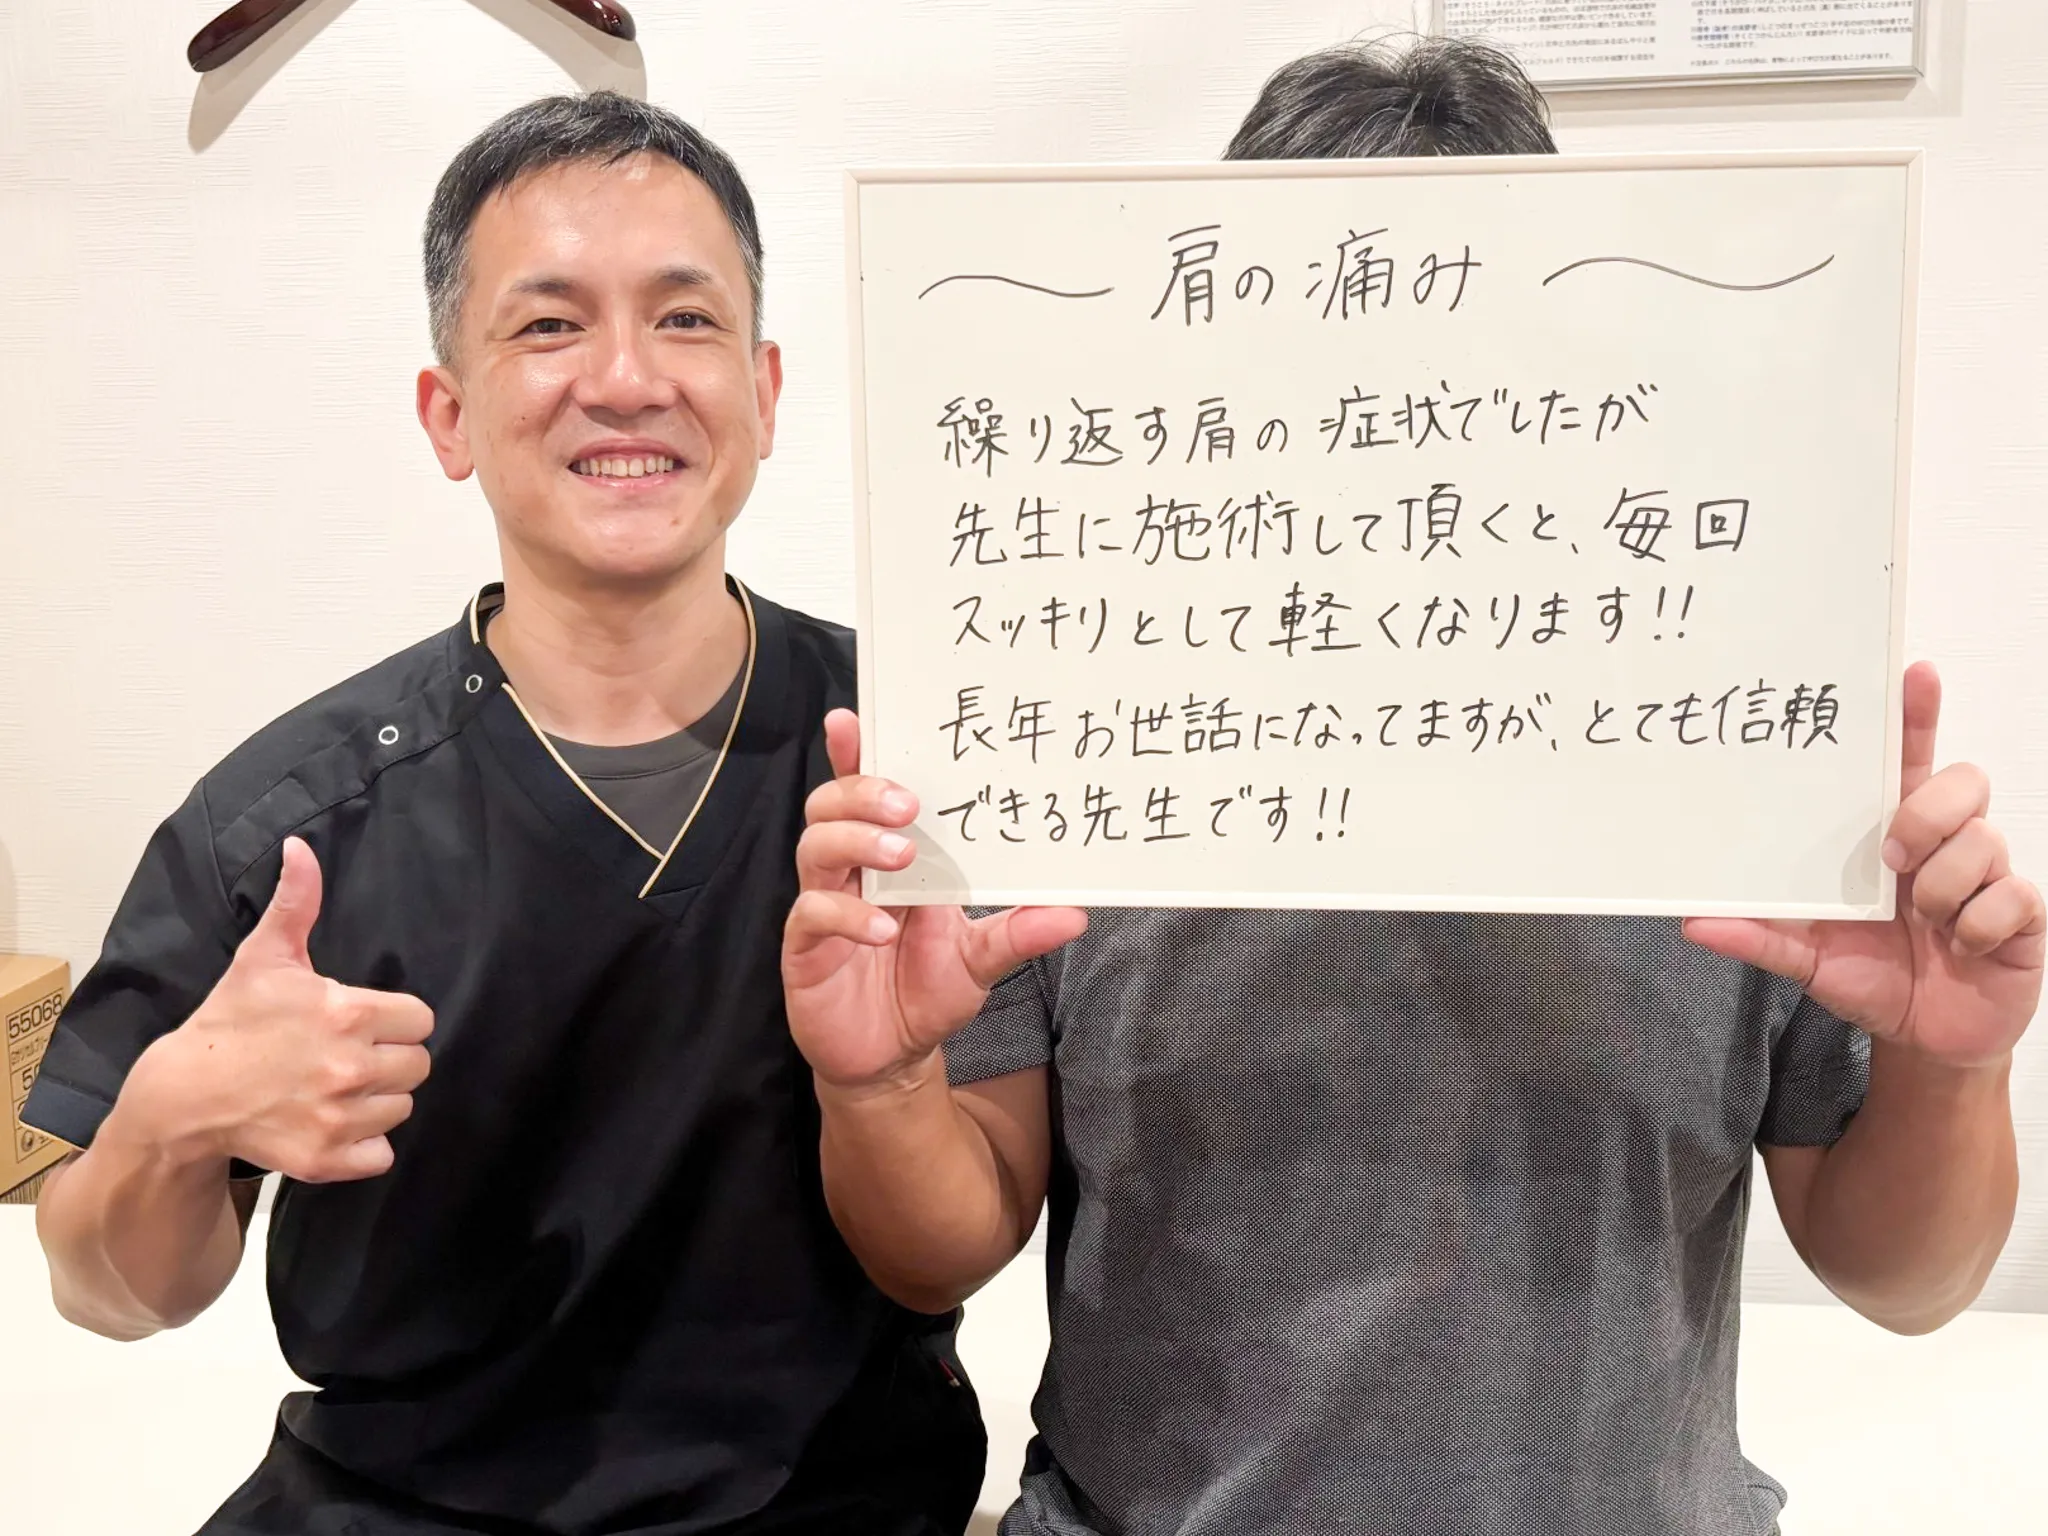 肩の痛み
繰り返す肩の症状でしたが
先生に施術して頂くと、毎回
スッキリとして軽くなります!!
長年お世話になってますが、とても信頼
できる先生です!!
55068